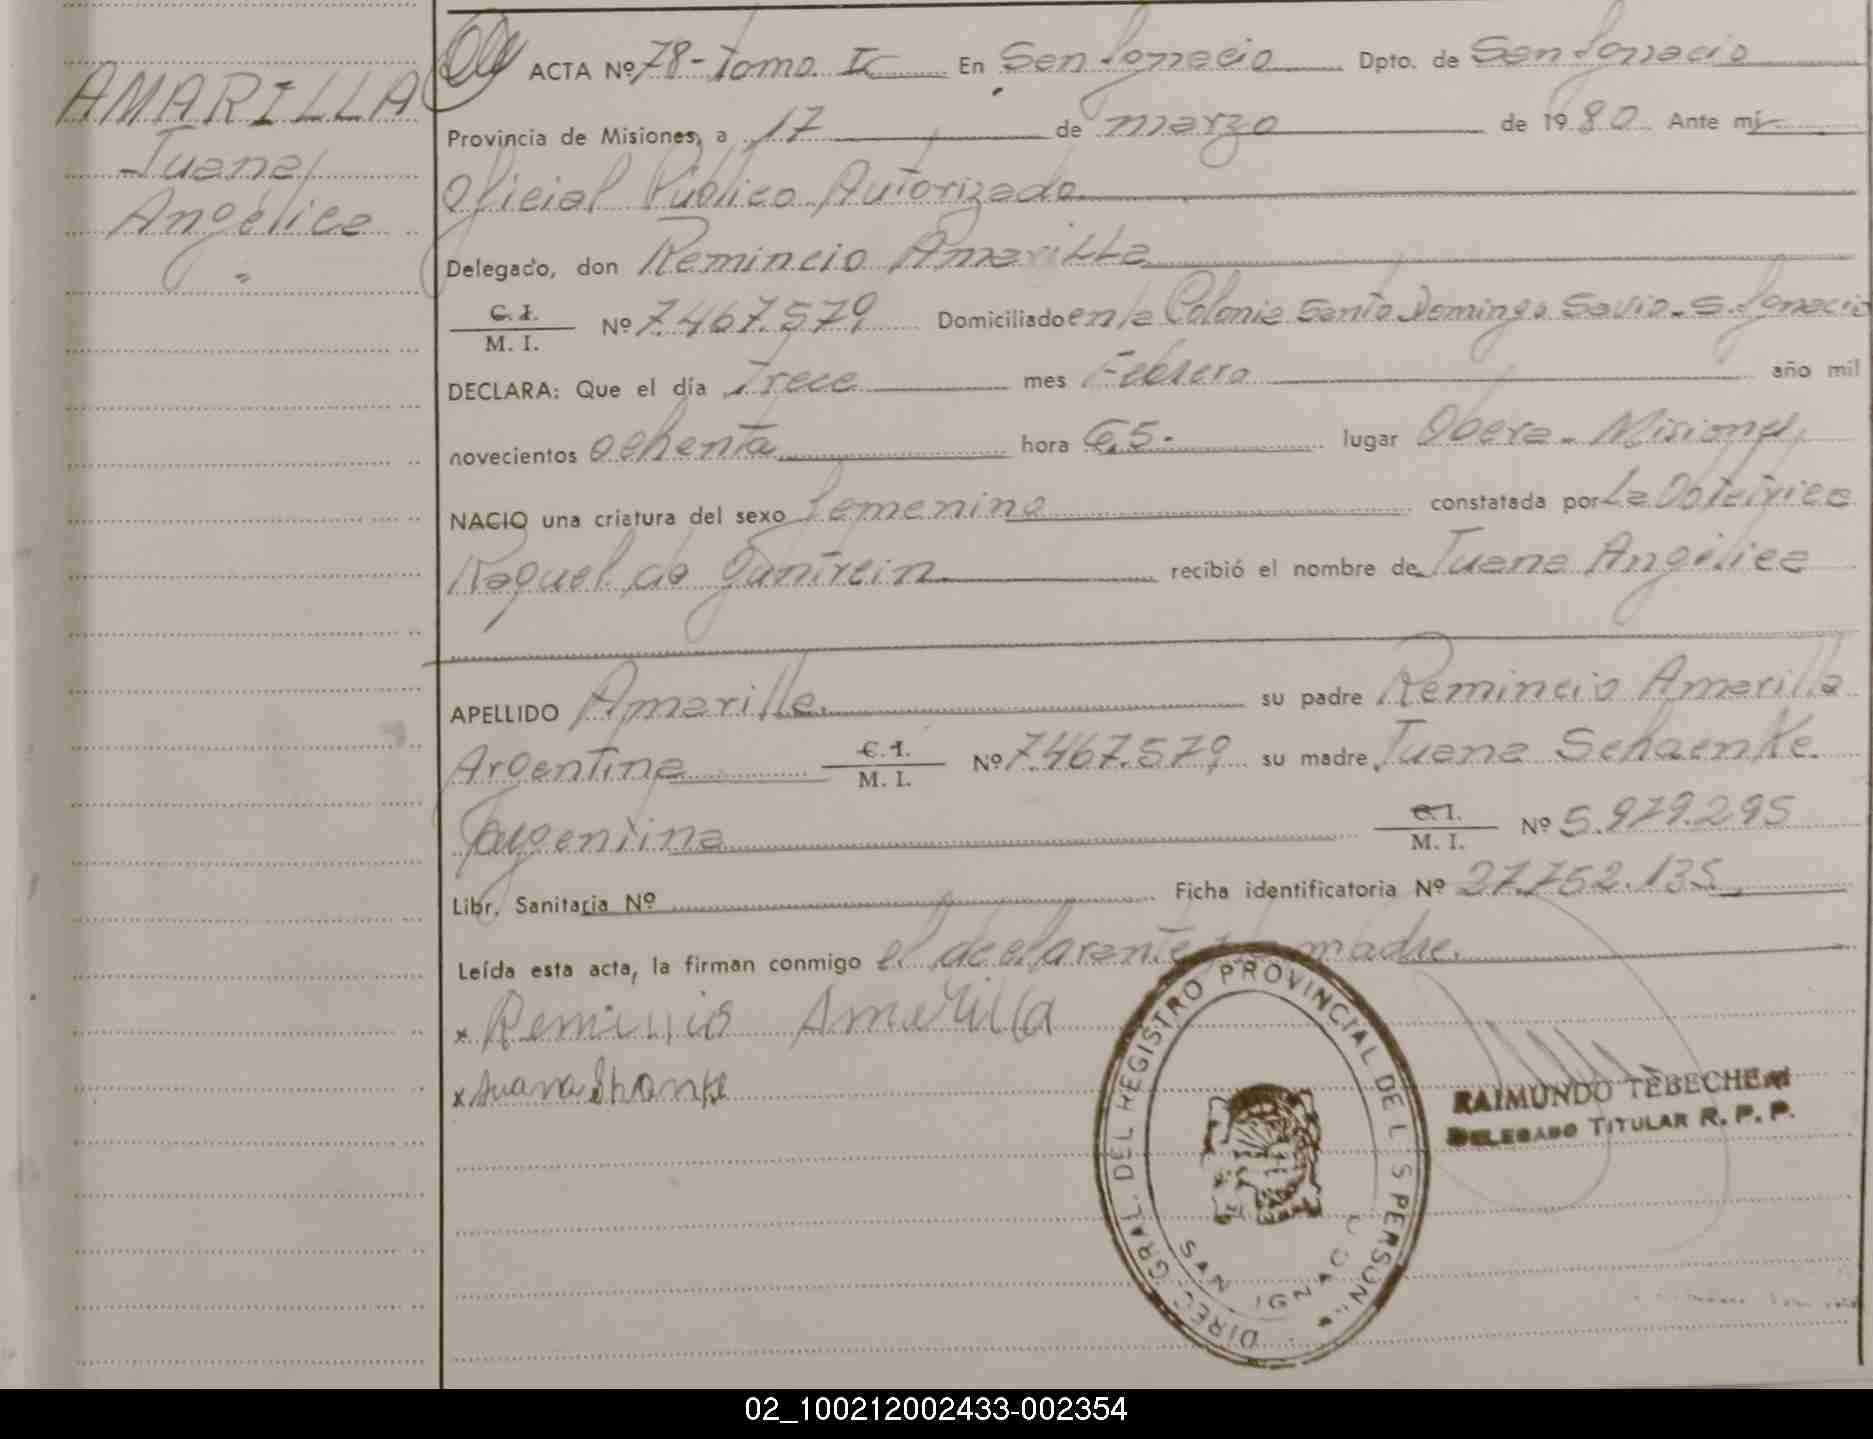 AMARILLA
Juana
Angélica
"
ACTA Nº 78 - Tomo II En San Ignacio Dpto. de San Ignacio
Provincia de Misiones, a 17 de marzo de 1980 Ante mí
Oficial Público Autorizado
Delegado, don Remincio Amarilla
C. I.
M. I. Nº 7.467.579 Domiciliado en la Colonia Santo Domingo Savio - S. Ignacio
DECLARA: Que el día Trece mes Febrero año mil
novecientos ochenta hora 6,5. lugar Obera - Misiones
NACIO una criatura del sexo femenino constatada por La
Raquel de recibió el nombre de Juana Angélica
APELLIDO Amarilla. su padre Remincio Amarilla
Argentina C. I. M. I. Nº 7.467.579 su madre Juana Schaenke.
Argentina C. I. M. I. Nº 5.979.295
Libr. Sanitaria Nº Ficha identificatoria Nº 27.752.135
Leída esta acta, la firman conmigo el declarante y la madre.
x Remincio Amarilla
x Juana Shanke
DIREC. GRAL. DEL REGISTRO PROVINCIAL DE L S PERSON
SAN IGNACI
RAIMUNDO TEBECHERI
DELEGADO TITULAR R. P. P.
02_100212002433-002354